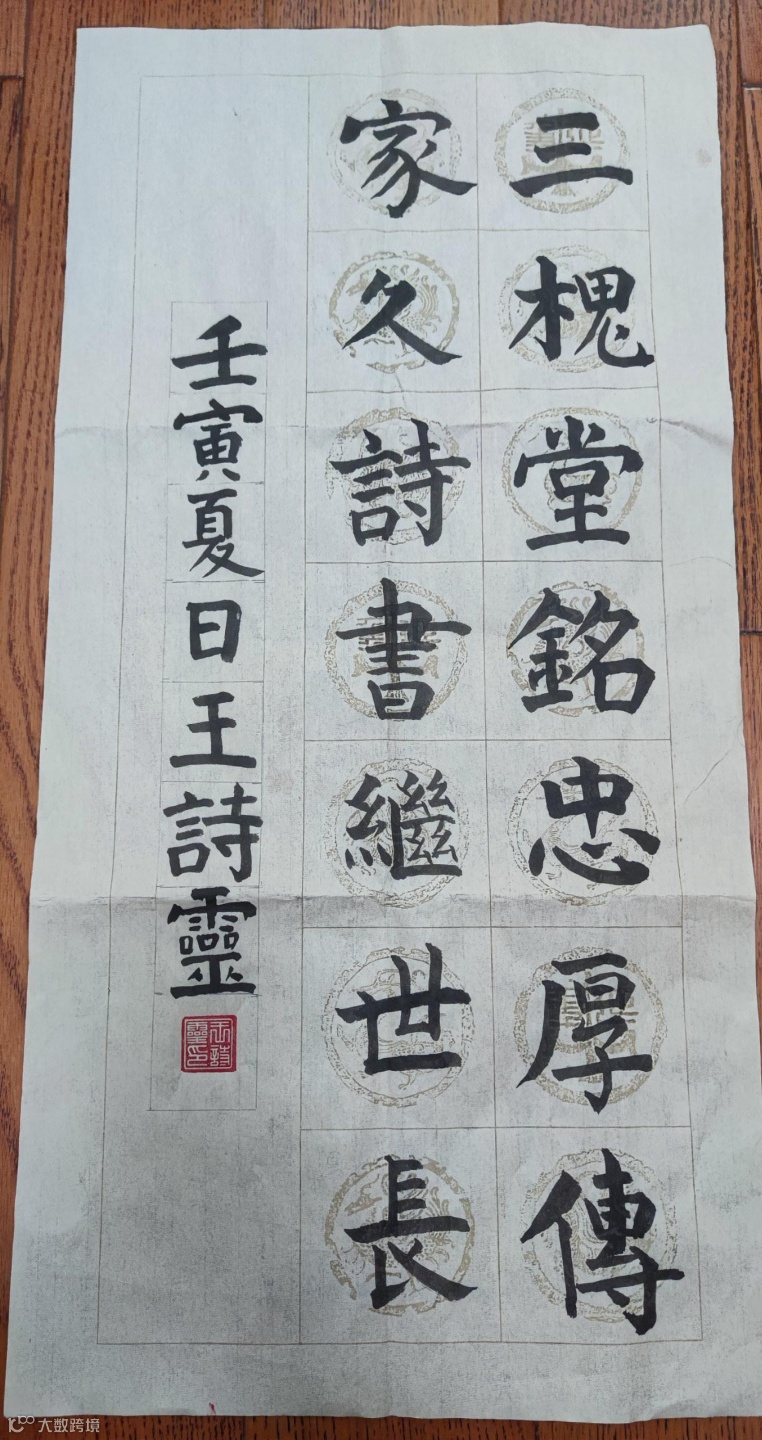 三槐堂銘忠厚傳
家久詩書繼世長
壬寅夏日王詩靈
王詩靈印
大数跨境